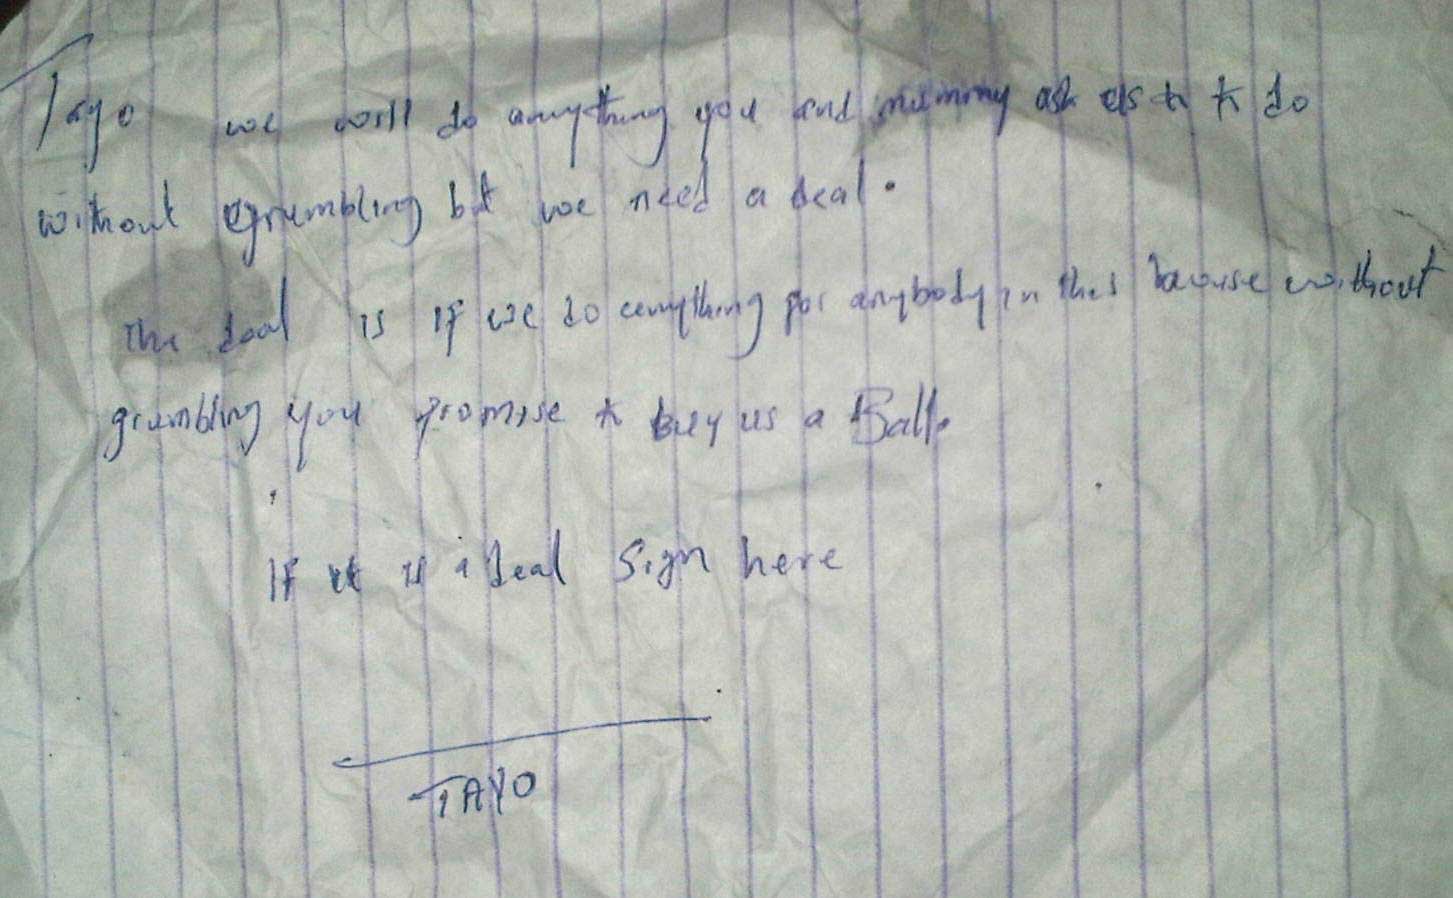 Tayo we will do anything you and mummy ask us to to do
without grumbling but we need a deal.
The deal is if we do anything for anybody in this house without
grumbling you promise to buy us a Ball.
If it is a deal Sign here
TAYO